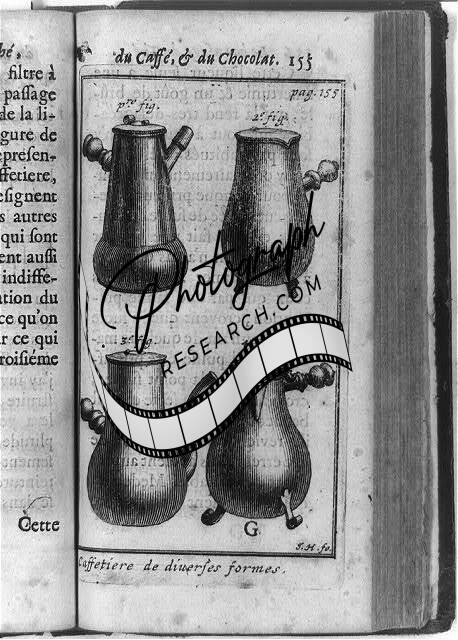 bé,
filtre à
paſſage
de la li-
gure de
epréſen-
ffetiere,
eſignent
s autres
qui ſont
ent auſſi
indiffe-
ation du
ce qu'on
r ce qui
roiſiéme
Cette
du Caffé, & du Chocolat. 155
pag. 155
pre fig.
2e fig.
3e fig.
G
J.H. fe.
Caffetiere de diuerſes formes.
Photograph
RESEARCH.COM